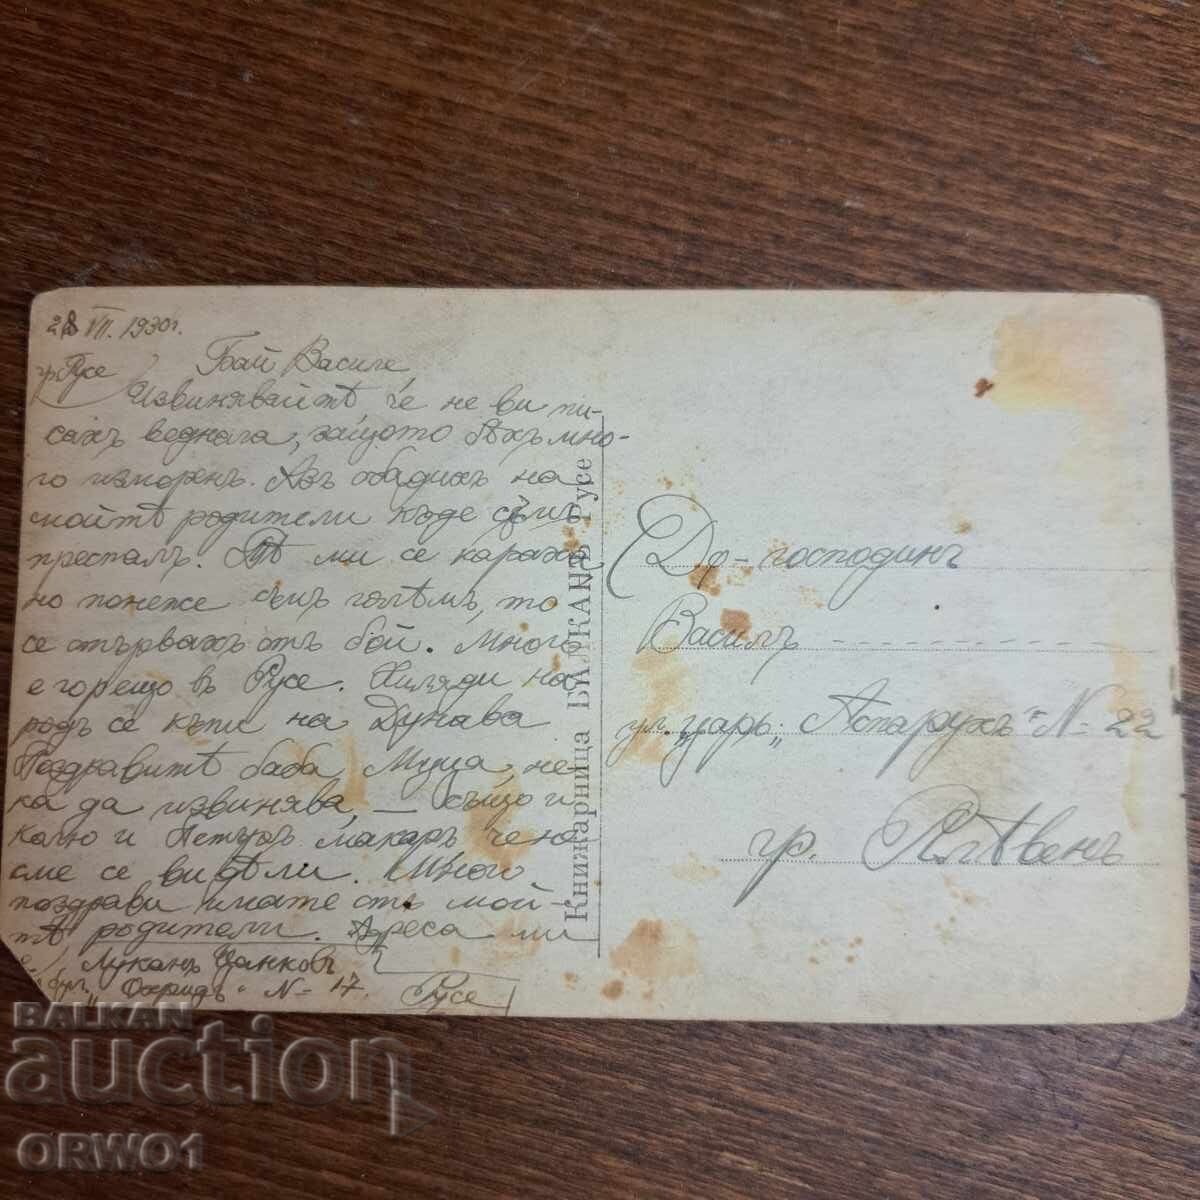 28 VII. 1930г.
гр. Русе
Бай Василе
Извинявайтѣ че не ви пи-
сахъ веднага, защото бѣхъ мно-
го изморенъ. Азъ обадихъ на
мойтѣ родители къде съмъ
преспалъ. Тѣ ми се караха
но понеже съмъ голѣмъ, то
се отървахъ отъ бой. Много
е горещо в Русе. Хиляди на
родъ се къпи на Дунава
Поздравитѣ баба Муца, не-
ка да извинява, — също и
калю и Петъръ макаръ че не
сме се видѣли. Много
поздрави имате отъ мой-
тѣ родители. Адреса ми
е Луканъ Цанковъ
бул. „Охридъ“ № 17. Русе
Книжарница БАЛКАНЪ Русе
До-господинъ
Василъ
ул. „царь „Аспарухъ“ № 22
гр. Плѣвенъ
BALKAN
auction
ORWO1